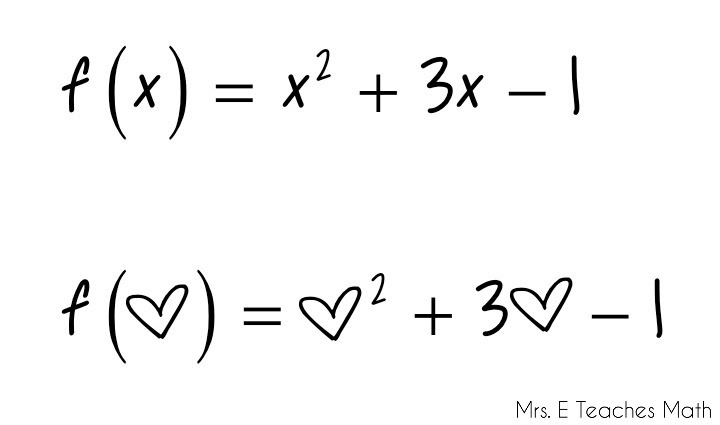 f(x) = x² + 3x − 1
f(♡) = ♡² + 3♡ − 1
Mrs. E Teaches Math